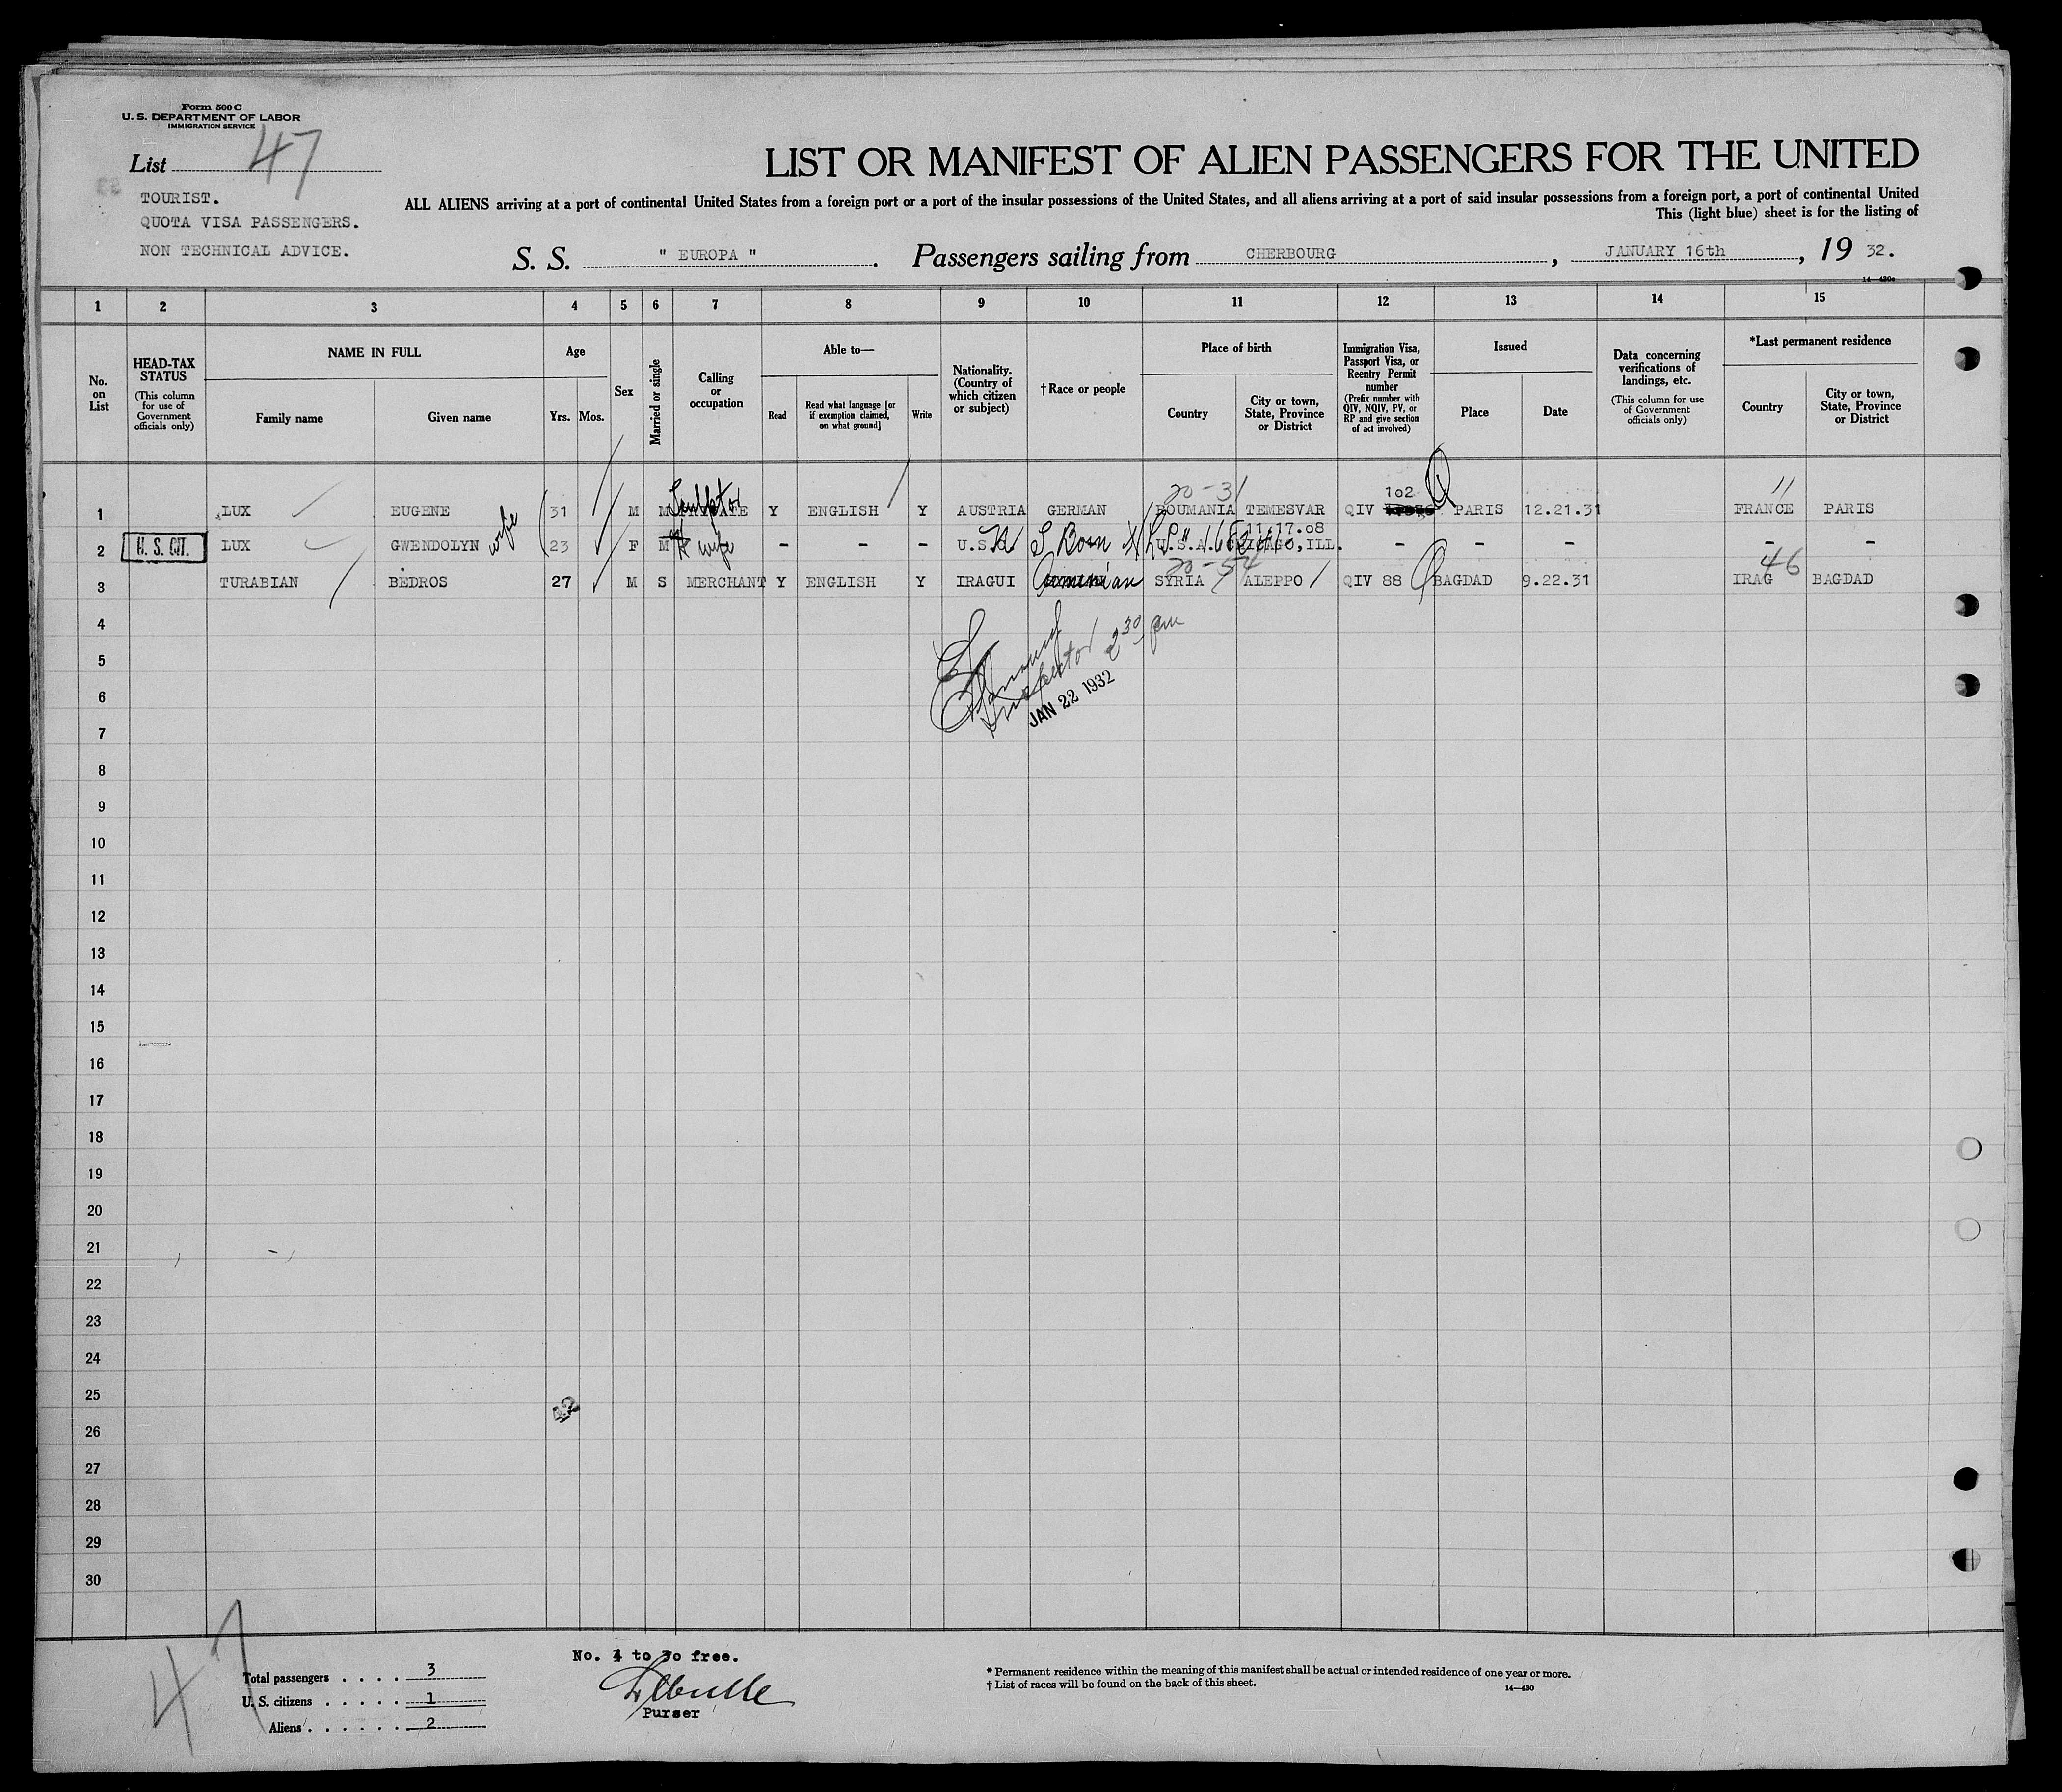 Form 500 C
U. S. DEPARTMENT OF LABOR
IMMIGRATION SERVICE
List 47
LIST OR MANIFEST OF ALIEN PASSENGERS FOR THE UNITED
TOURIST.
QUOTA VISA PASSENGERS.
NON TECHNICAL ADVICE.
ALL ALIENS arriving at a port of continental United States from a foreign port or a port of the insular possessions of the United States, and all aliens arriving at a port of said insular possessions from a foreign port, a port of continental United
This (light blue) sheet is for the listing of
S. S. " EUROPA ". Passengers sailing from CHERBOURG, JANUARY 16th, 19 32.
14—430a
1 2 3 4 5 6 7 8 9 10 11 12 13 14 15
No. on List
HEAD-TAX STATUS (This column for use of Government officials only)
NAME IN FULL
Family name
Given name
Age
Yrs. Mos.
Sex
Married or single
Calling or occupation
Able to—
Read
Read what language [or if exemption claimed, on what ground]
Write
Nationality. (Country of which citizen or subject)
† Race or people
Place of birth
Country
City or town, State, Province or District
Immigration Visa, Passport Visa, or Reentry Permit number (Prefix number with QIV, NQIV, PV, or RP and give section of act involved)
Issued
Place
Date
Data concerning verifications of landings, etc. (This column for use of Government officials only)
*Last permanent residence
Country
City or town, State, Province or District
20-31 102 Q 11
1 LUX EUGENE 31 M M PRIVATE Sculptor Y ENGLISH Y AUSTRIA GERMAN ROUMANIA TEMESVAR QIV PARIS 12.21.31 FRANCE PARIS
wife
11.17.08
2 U. S. CIT. LUX GWENDOLYN 23 F M H wife - - - U.S.A. Born U.S.A. CHICAGO, ILL. - - - - -
20-54 46
3 TURABIAN BEDROS 27 M S MERCHANT Y ENGLISH Y IRAGUI Armenian SYRIA ALEPPO QIV 88 BAGDAD 9.22.31 IRAG BAGDAD
4
5
Inspector 2 30 pm
6
JAN 22 1932
7
8
9
10
11
12
13
14
15
16
17
18
19
20
21
22
23
24
25
42
26
27
28
29
30
47
No. 4 to 30 free.
Total passengers . . . . 3
U. S. citizens . . . . . 1
Aliens . . . . . . 2
Purser
* Permanent residence within the meaning of this manifest shall be actual or intended residence of one year or more.
† List of races will be found on the back of this sheet.
14—430